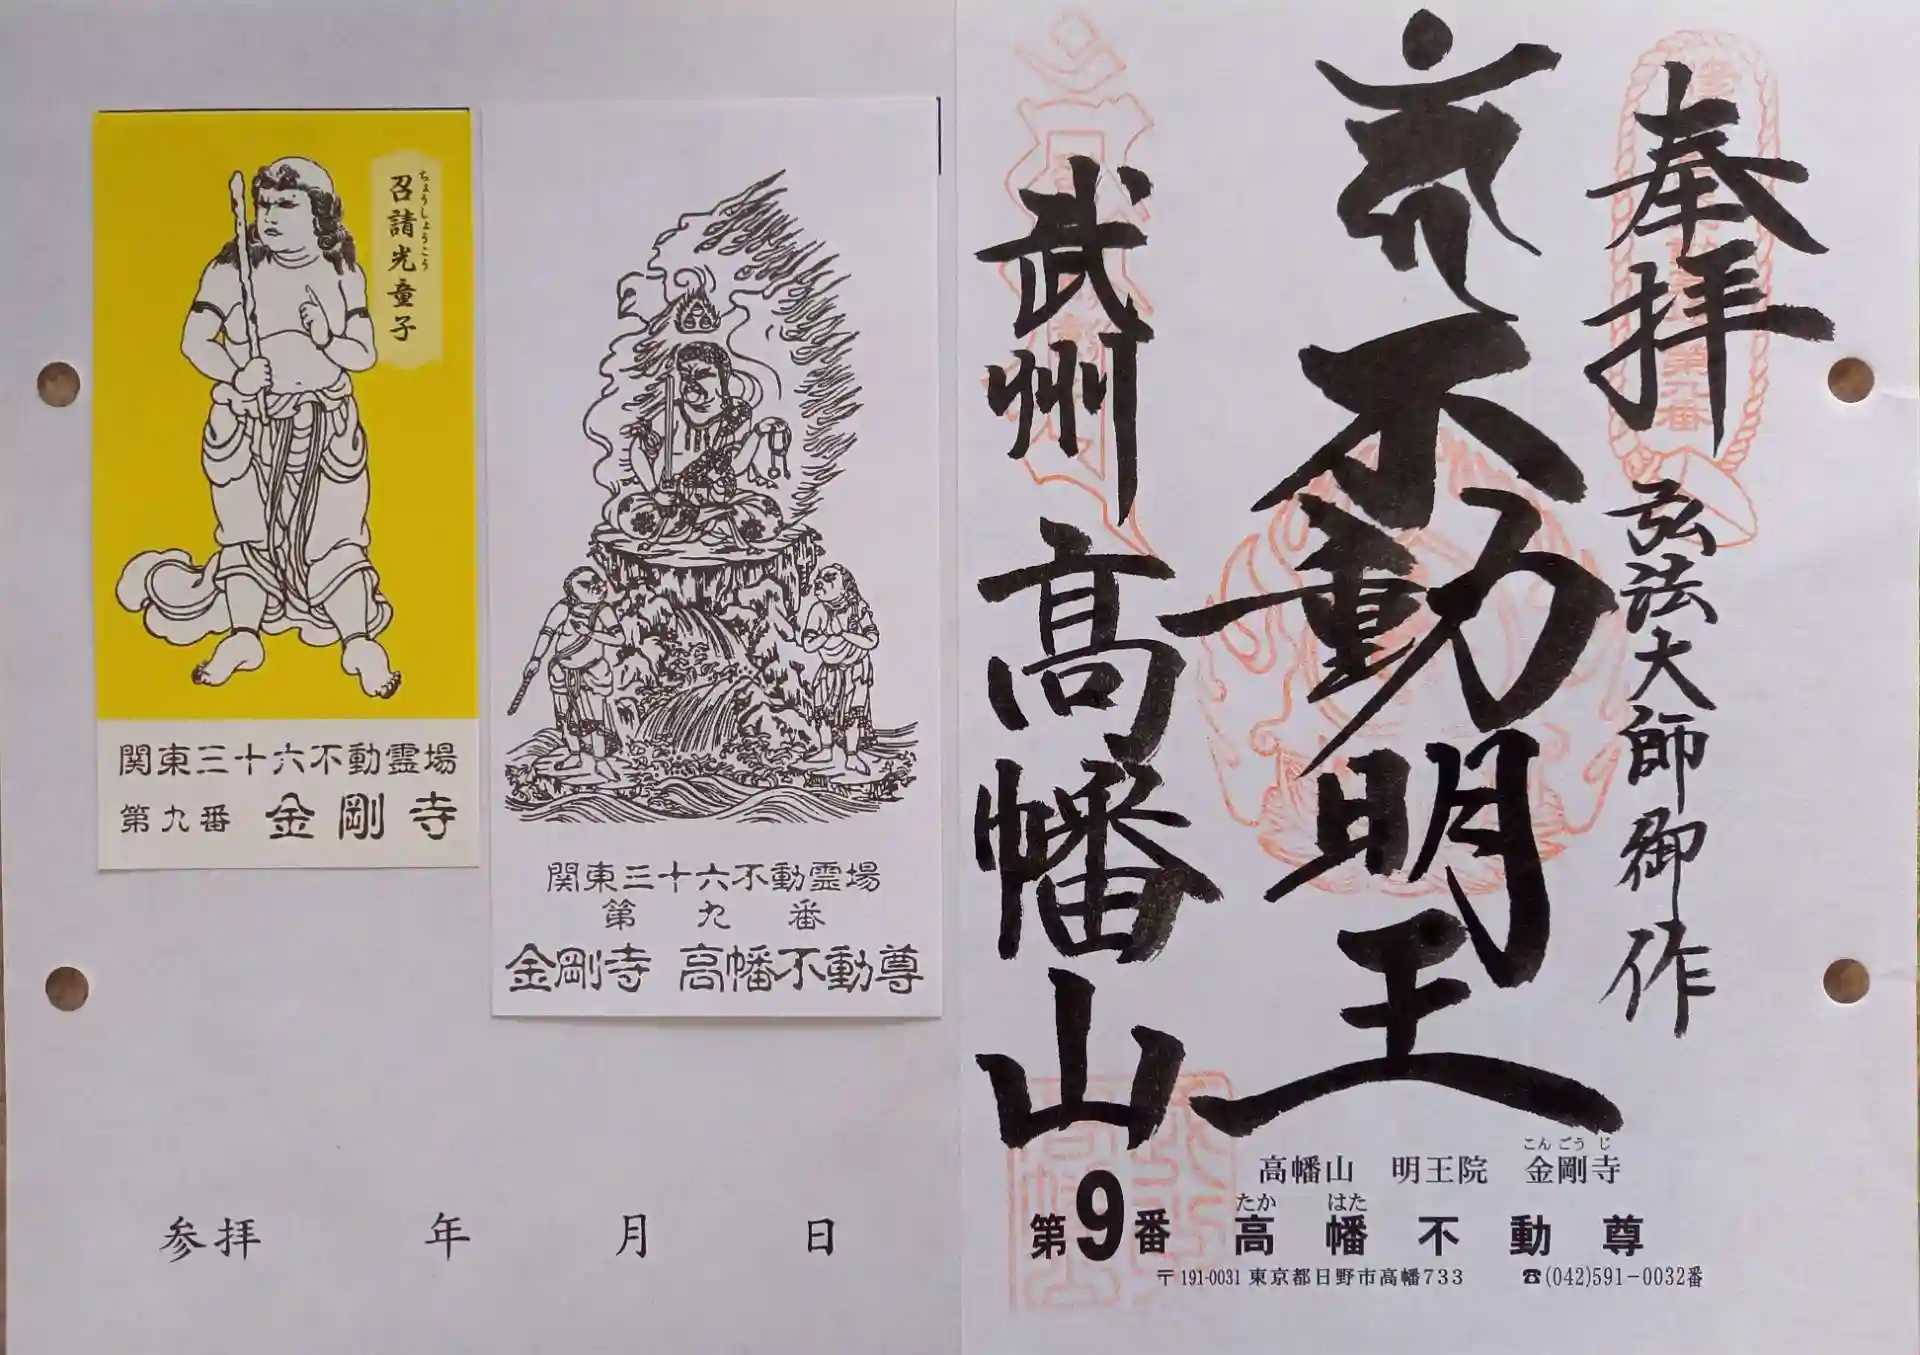 召請光童子
ちょうしょうこう
関東三十六不動霊場
第九番 金剛寺
関東三十六不動霊場
第九番
金剛寺 高幡不動尊
参拝 年 月 日
奉拝
弘法大師御作
不動明王
武州
高幡山
高幡山 明王院 金剛寺
こんごうじ
第9番 高幡不動尊
たか はた
〒191-0031 東京都日野市高幡733 ☎(042)591-0032番